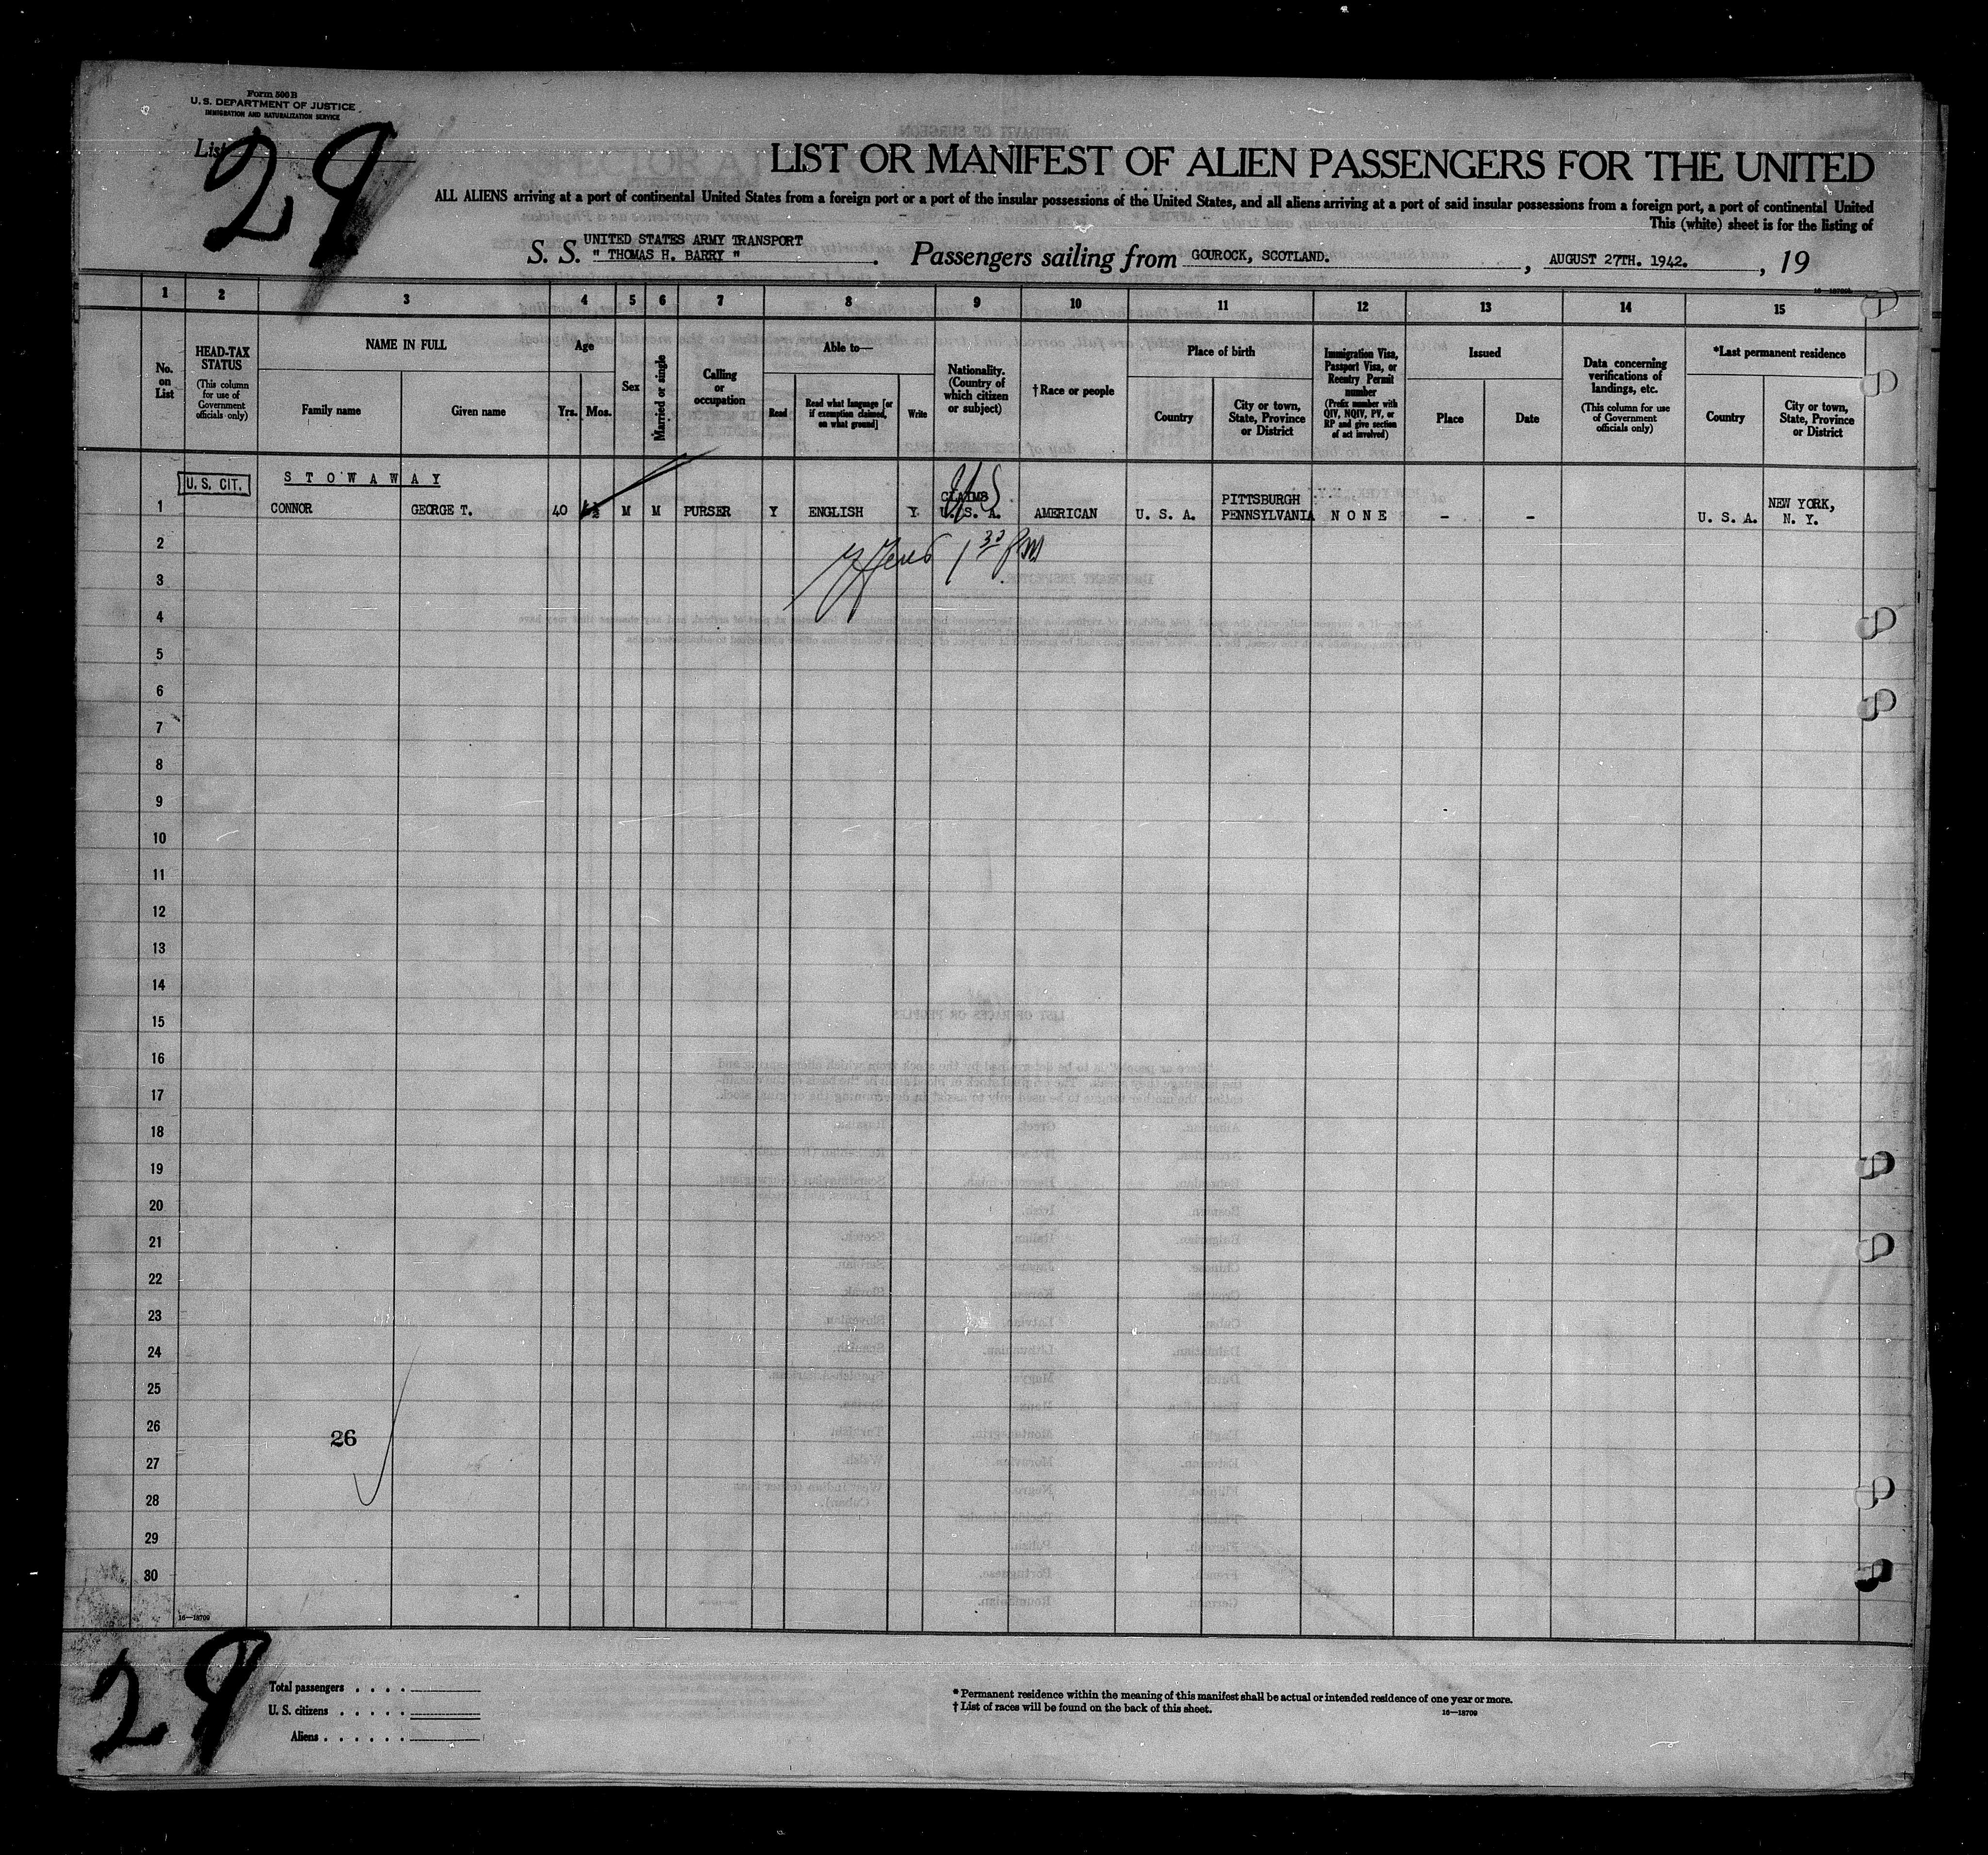 Form 500 B
U. S. DEPARTMENT OF JUSTICE
IMMIGRATION AND NATURALIZATION SERVICE
List 29
LIST OR MANIFEST OF ALIEN PASSENGERS FOR THE UNITED
ALL ALIENS arriving at a port of continental United States from a foreign port or a port of the insular possessions of the United States, and all aliens arriving at a port of said insular possessions from a foreign port, a port of continental United
This (white) sheet is for the listing of
S. S. UNITED STATES ARMY TRANSPORT
" THOMAS H. BARRY " . Passengers sailing from GOUROCK, SCOTLAND. , AUGUST 27TH. 1942. , 19
1 2 3 4 5 6 7 8 9 10 11 12 13 14 15
No. on List
HEAD-TAX STATUS
(This column for use of Government officials only)
NAME IN FULL
Family name
Given name
Age
Yrs. Mos.
Sex
Married or single
Calling or occupation
Able to—
Read
Read what language [or if exemption claimed, on what ground]
Write
Nationality. (Country of which citizen or subject)
†Race or people
Place of birth
Country
City or town, State, Province or District
Immigration Visa, Passport Visa, or Reentry Permit number
(Prefix number with QIV, NQIV, PV, or RP and give section of act involved)
Issued
Place
Date
Data concerning verifications of landings, etc.
(This column for use of Government officials only)
*Last permanent residence
Country
City or town, State, Province or District
U. S. CIT.
S T O W A W A Y
1 CONNOR GEORGE T. 40 M M PURSER Y ENGLISH Y CLAIMS U. S. A. AMERICAN U. S. A. PITTSBURGH PENNSYLVANIA N O N E - - U. S. A. NEW YORK, N. Y.
US
1 30 PM
2
3
4
5
6
7
8
9
10
11
12
13
14
15
16
17
18
19
20
21
22
23
24
25
26
26
27
28
29
30
16—18709
29
Total passengers . . . .
U. S. citizens . . . . .
Aliens . . . . . .
* Permanent residence within the meaning of this manifest shall be actual or intended residence of one year or more.
† List of races will be found on the back of this sheet.
16—18709